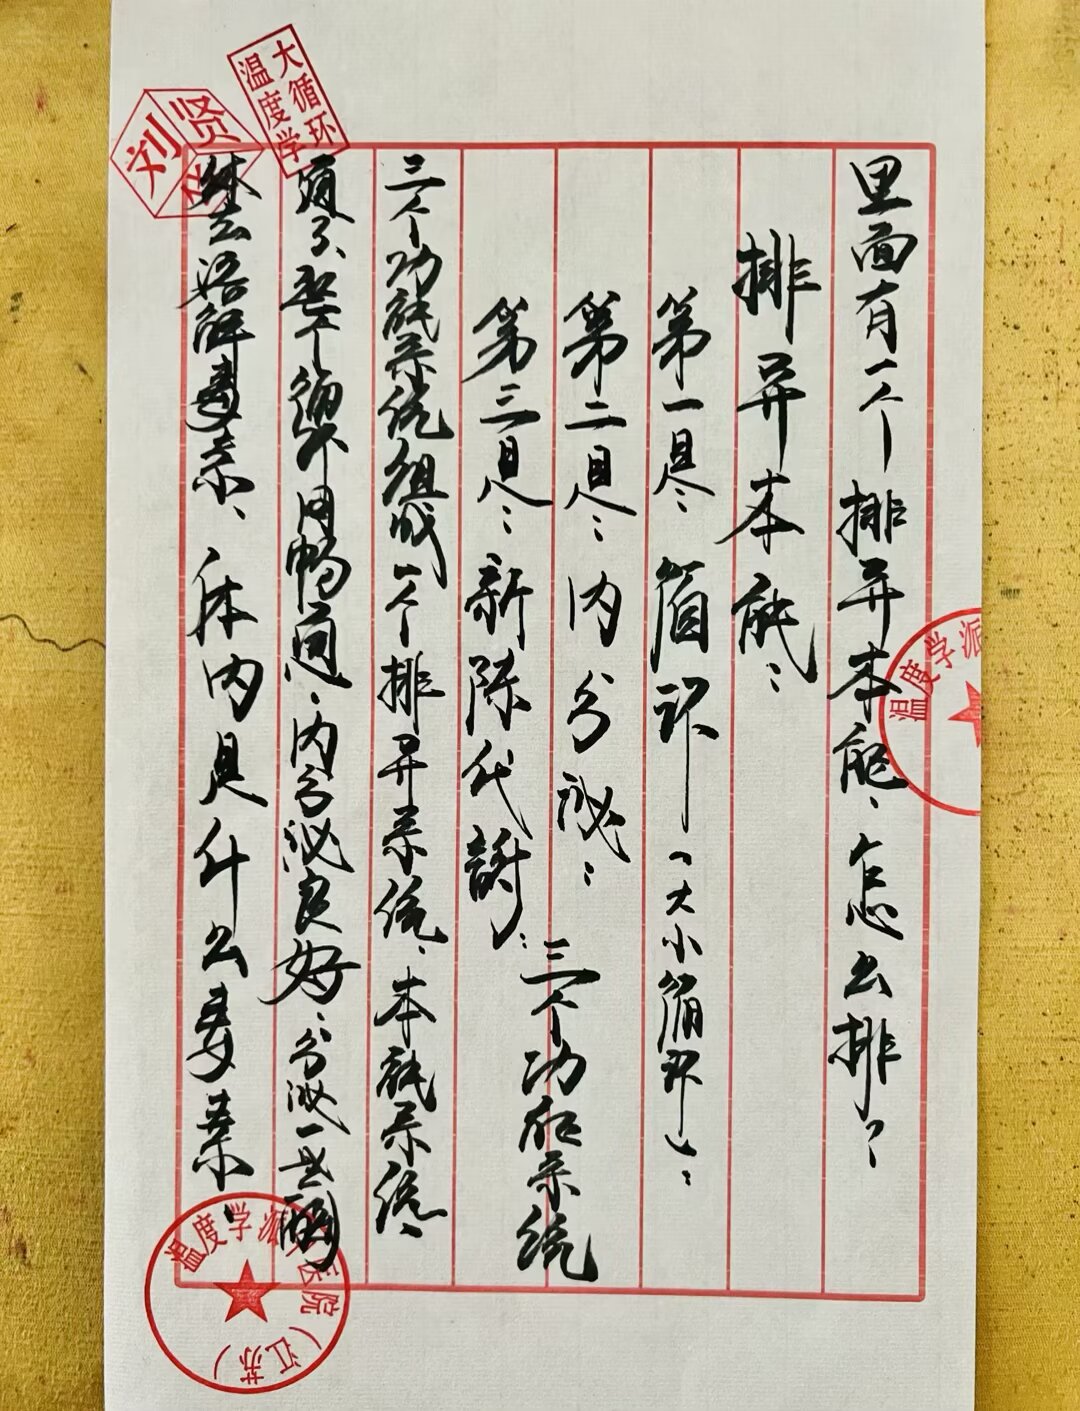 里面有一个排异本能、怎么排？
排异本能：
第一是：循环（大小循环）：
第二是：内分泌：
第三是：新陈代谢：三个功能系统
三个功能系统组成一个排异系统、本能系统、
通了、整个循环周畅通：内分泌良好：分泌一些酶
体去溶解毒素、体内是什么毒素、
大循环
温度学
刘贤
温度学派
温度学派 医院（江苏）